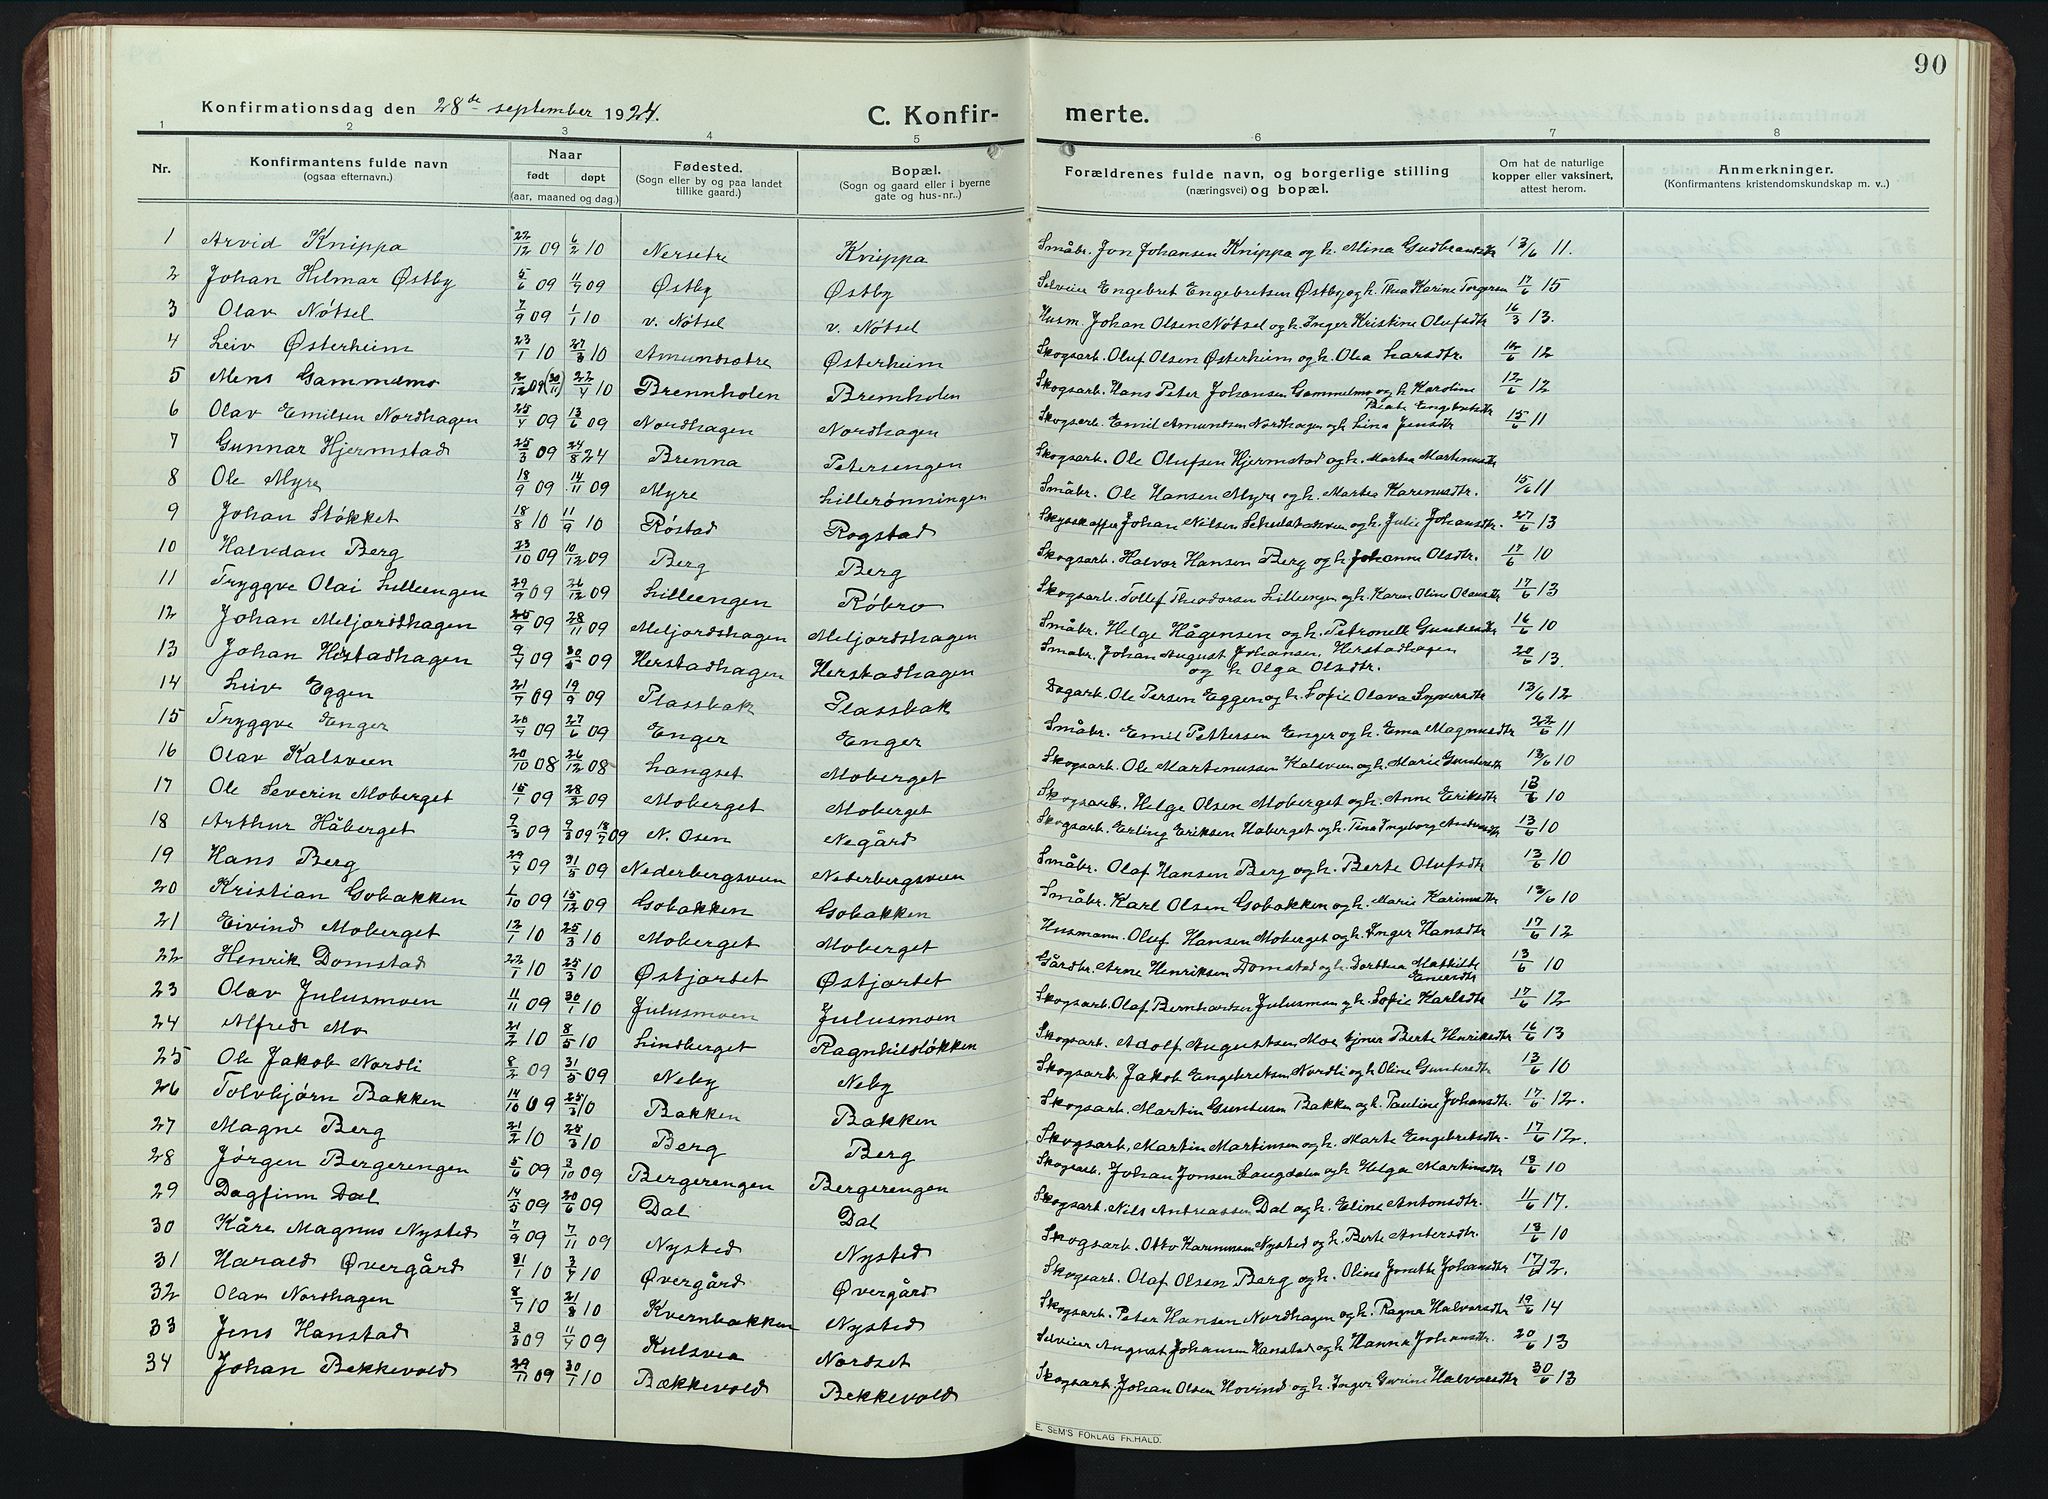 90
Konfirmationsdag den 28de september 1924.
C. Konfirmerte.
1 2 3 4 5 6 7 8
Nr.
Konfirmantens fulde navn
(ogsaa efternavn.)
Naar
født døpt
(aar, maaned og dag.)
Fødested.
(Sogn eller by og paa landet
tillike gaard.)
Bopæl.
(Sogn og gaard eller i byerne
gate og hus-nr..)
Forældrenes fulde navn, og borgerlige stilling
(næringsvei) og bopæl.
Om hat de naturlige
kopper eller vaksinert,
attest herom.
Anmerkninger.
(Konfirmantens kristendomskundskap m. v..)
1 Arvid Knippa 22/12 09 6/2 10 Nersetre Knippa Småbr. Jon Johansen Knippa og h. Mina Gudbrandsdtr 13/6 11.
2 Johan Hilmar Østby 5/6 09 11/7 09 Østby Østby Selveier Engebret Engebretsen Østby og h. Thea Karine Torgersen 17/6 15
3 Olav Nøtsel 7/9 09 1/1 10 v. Nøtsel v. Nøtsel Husm. Johan Olsen Nøtsel og h. Inger Kristine Olufsdtr 16/3 13.
4 Leiv Østerheim 23/1 10 27/3 10 Amundsetre Østerheim Skogsarb. Oluf Olsen Østerheim og h. Olea Larsdtr. 12/6 12
5 Mens Gammelmo 2/12 09 (30/11) 22/4 10 Brennholen Bremholen Skogsarb. Hans Peter Johansen Gammelmo og h. Karoline Beate Engebretsdtr 12/6 12
6 Olav Emilsen Nordhagen 25/4 09 13/6 09 Nordhagen Nordhagen Skogsarb. Emil Amundsen Nordhagen og h. Lina Jensdtr 15/6 11
7 Gunnar Hjermstad 25/3 09 24/8 24 Brenna Petersengen Skogsarb. Ole Olufsen Hjermstad og h. Martea Martinusdtr
8 Ole Myre 18/9 09 14/11 09 Myre Lillerønningen Småbr. Ole Hansen Myre og h. Martea Karenusdtr. 15/6 11
9 Johan Støkket 18/8 10 11/9 10 Røstad Rogstad Skysskaffer Johan Nilsen og h. Julie Johansdtr. 27/6 13
10 Halvdan Berg 23/10 09 10/12 09 Berg Berg Skogsarb. Halvor Hansen Berg og h. Johanne Olsdtr. 17/6 10
11 Tryggve Olai Lilleengen 29/9 09 26/12 09 Lilleengen Røbro Skogsarb. Tollef Theodorsen Lilleengen og h. Karen Oline Olausdtr 17/6 13
12 Johan Meljordshagen 25/9 09 28/11 09 Meljordshagen Meljordshagen Småbr. Helge Hågensen og h. Petronelle Gundersdtr 16/6 10
13 Johan Hestadhagen 9/4 09 30/5 09 Herstadhagen Herstadhagen Småbr. Johan August Johansen Herstadhagen og h Olga Olsdtr. 20/6 13.
14 Leiv Eggen 21/7 09 19/9 09 Plassbak Plassbak Dagarb. Ole Persen Eggen og h. Sofie Olava Syversdtr 13/6 12
15 Tryggve Enger 20/4 09 27/6 09 Enger Enger Småbr. Emil Pettersen Enger og h. Ema Magnusdtr 22/6 11
16 Olav Kalsveen 20/10 08 26/12 08 Langset Moberget Skogsarb. Ole Martinussen Kalsveen og h. Marie Gundersdtr 13/6 10
17 Ole Severin Moberget 15/1 09 28/2 09 Moberget Moberget Skogsarb. Helge Olsen Moberget og h. Anne Eriksdtr 13/6 10
18 Arthur Håberget 9/3 09 9/3 09 18/7 09 N. Osen Negård Skogsarb. Erling Eriksen Haberget og h. Tina Ingeborg Andersdtr 13/6 10
19 Hans Berg 29/4 09 31/5 09 Nederbergsveen Nederbergsveen Småbr. Olaf Hansen Berg og h. Berte Olufsdtr 13/6 10
20 Kristian Gobakken 1/10 09 15/12 09 Gobakken Gobakken Småbr. Karl Olsen Gobakken og h. Marie Karinusdtr 13/6 10
21 Eivind Moberget 12/1 10 25/3 10 Moberget Moberget Husmann. Oluf Hansen Moberget og h. Inger Hansdtr 17/6 12
22 Henrik Domstad 22/1 10 25/3 10 Østjordet Østjordet Gårdbr. Arne Henriksen Domstad og h. Dorthea Mathilde Enersdtr 13/6 10
23 Olav Julusmoen 11/11 09 30/1 10 Julusmoen Julusmoen Skogsarb. Olaf Bernhardsen Julusmoen og h. Sofie Karlsdtr 17/6 12
24 Alfred Mo 21/2 10 8/5 10 Lindberget Ragnhildløkken Skogsarb. Adolf Augustsen Moe Ejner Berte Henriksdtr 16/6 13
25 Ole Jakob Nordli 8/2 09 31/5 09 Neby Neby Skogsarb. Jakob Engebretsen Nordli og h Oline Gundersdtr 13/6 10
26 Tolvbjørn Bakken 14/10 09 25/3 10 Bakken Bakken Skogsarb. Martin Gundersen Bakken og h. Pauline Johansdtr. 17/6 12.
27 Magne Berg 21/2 10 28/3 10 Berg Berg Skogsarb. Martin Martinsen og h. Marte Engebretsdtr. 17/6 12.
28 Jørgen Bergerengen 5/6 09 3/10 09 Bergerengen Bergerengen Skogsarb. Johan Jonsen Laugdalen og h Helga Martinsdtr 13/6 10
29 Dagfinn Dal 14/5 09 20/6 09 Dal Dal Skogsarb. Nils Andreassen Dal og h. Eline Antonsdtr. 11/6 17.
30 Kåre Magnus Nysted 7/9 09 7/11 09 Nysted Nysted Skogsarb. Otto Karinussen Nysted og h. Berte Andersdtr. 13/6 10
31 Harald Øvergård 31/1 10 3/4 10 Øvergård Øvergård Skogsarb. Olaf Olsen Berg og h. Oline Jonette Johansdtr 17/6 12.
32 Olav Nordhagen 8/7 10 21/8 10 Kvernbakken Nysted Skogsarb. Peter Hansen Nordhagen og h. Ragna Halvorsdtr 19/6 14
33 Jens Hanstad 3/3 09 11/4 09 Kulsvea Nordset Selveier August Johansen Hanstad og h Hanna Johansdtr. 20/6 13
34 Johan Bekkevold 29/11 09 30/1 10 Bækkevold Bekkevold Skogsarb. Johan Olsen Hovind og h. Inger Gurine Halvorsdtr 30/6 13
E. SEM'S FORLAG FR.HALD.